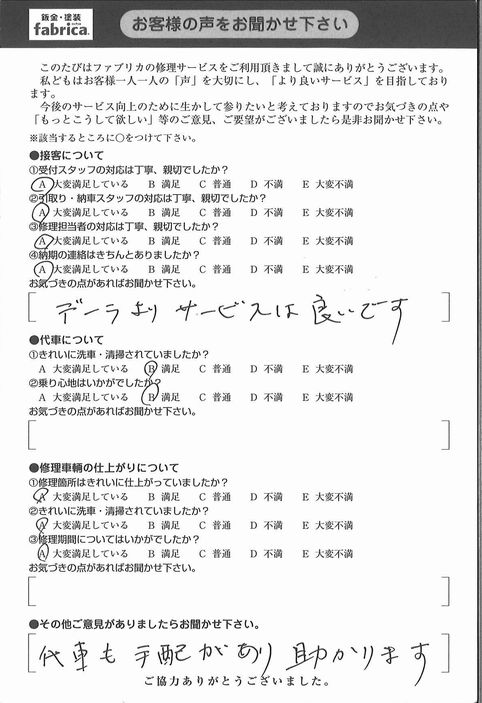 鈑金・塗装
fabrica.
お客様の声をお聞かせ下さい
このたびはファブリカの修理サービスをご利用頂きまして誠にありがとうございます。
私どもはお客様一人一人の「声」を大切にし、「より良いサービス」を目指しており
ます。
今後のサービス向上のために生かして参りたいと考えておりますのでお気づきの点や
「もっとこうして欲しい」等のご意見、ご要望がございましたら是非お聞かせ下さい。
※該当するところに〇をつけて下さい。
●接客について
①受付スタッフの対応は丁寧、親切でしたか？
A 大変満足している B 満足 C 普通 D 不満 E 大変不満
②引取り・納車スタッフの対応は丁寧、親切でしたか？
A 大変満足している B 満足 C 普通 D 不満 E 大変不満
③修理担当者の対応は丁寧、親切でしたか？
A 大変満足している B 満足 C 普通 D 不満 E 大変不満
④納期の連絡はきちんとありましたか？
A 大変満足している B 満足 C 普通 D 不満 E 大変不満
お気づきの点があればお聞かせ下さい。
デーラよりサービスは良いです
●代車について
①きれいに洗車・清掃されていましたか？
A 大変満足している B 満足 C 普通 D 不満 E 大変不満
②乗り心地はいかがでしたか？
A 大変満足している B 満足 C 普通 D 不満 E 大変不満
お気づきの点があればお聞かせ下さい。
●修理車輌の仕上がりについて
①修理箇所はきれいに仕上がっていましたか？
A 大変満足している B 満足 C 普通 D 不満 E 大変不満
②きれいに洗車・清掃されていましたか？
A 大変満足している B 満足 C 普通 D 不満 E 大変不満
③修理期間についてはいかがでしたか？
A 大変満足している B 満足 C 普通 D 不満 E 大変不満
お気づきの点があればお聞かせ下さい。
●その他ご意見がありましたらお聞かせ下さい。
代車も手配があり助かります
ご協力ありがとうございました。